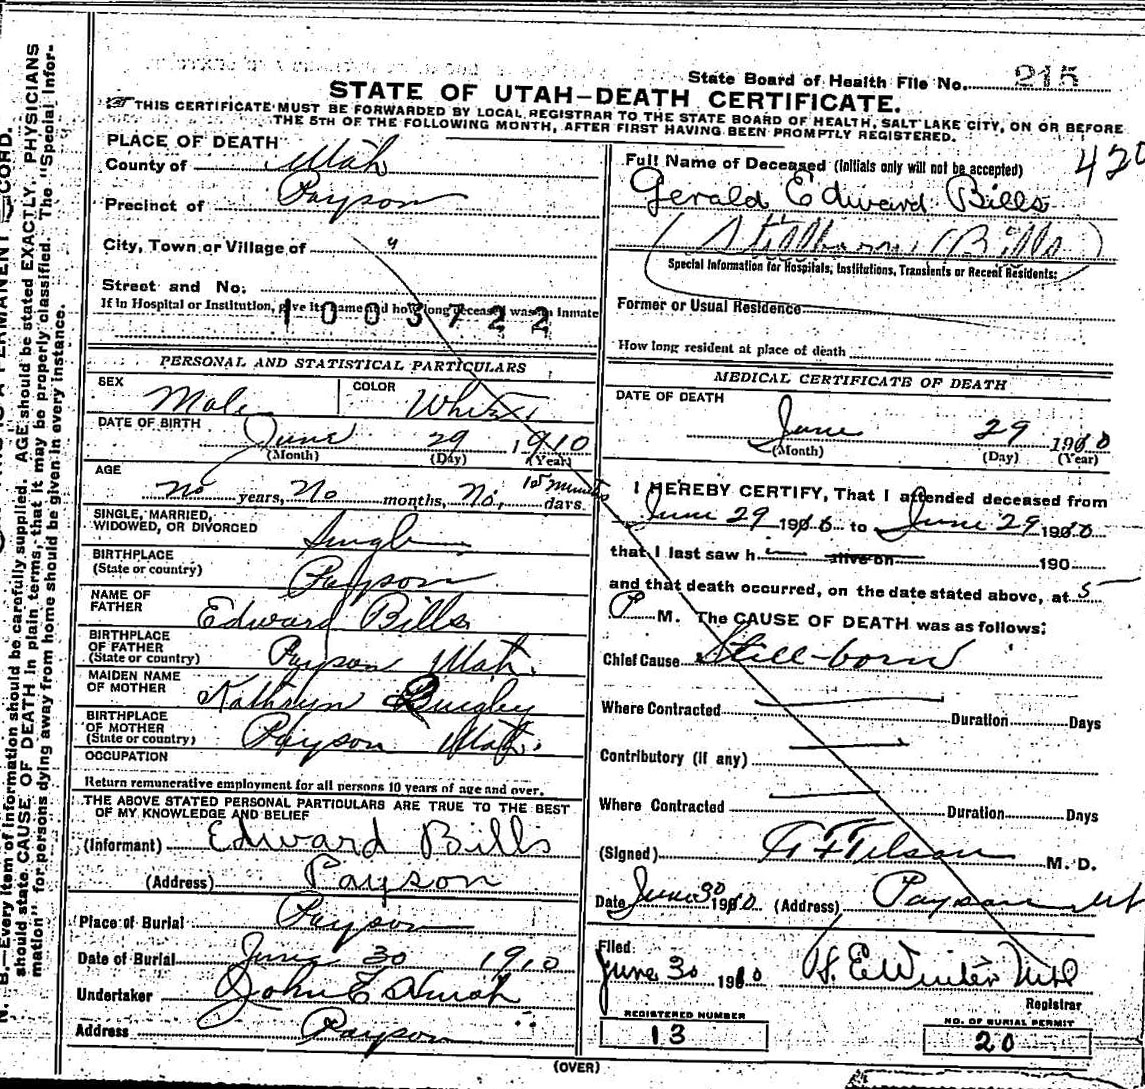 State Board of Health File No. 215
STATE OF UTAH-DEATH CERTIFICATE.
THIS CERTIFICATE MUST BE FORWARDED BY LOCAL REGISTRAR TO THE STATE BOARD OF HEALTH, SALT LAKE CITY, ON OR BEFORE
THE 5TH OF THE FOLLOWING MONTH, AFTER FIRST HAVING BEEN PROMPTLY REGISTERED.
PLACE OF DEATH
County of Utah
Precinct of Payson
City, Town or Village of "
Street and No.
If in Hospital or Institution, give its name and how long deceased was an Inmate
1003722
PERSONAL AND STATISTICAL PARTICULARS
SEX Male COLOR White
DATE OF BIRTH June 29 1910
(Month) (Day) (Year)
AGE
No years, No months, No, days.
SINGLE, MARRIED, WIDOWED, OR DIVORCED Single
BIRTHPLACE
(State or country) Payson
NAME OF FATHER Edward Bills
BIRTHPLACE OF FATHER
(State or country) Payson Utah.
MAIDEN NAME OF MOTHER Kathryn Quigley
BIRTHPLACE OF MOTHER
(State or country) Payson Utah.
OCCUPATION
Return remunerative employment for all persons 10 years of age and over.
THE ABOVE STATED PERSONAL PARTICULARS ARE TRUE TO THE BEST
OF MY KNOWLEDGE AND BELIEF
(Informant) Edward Bills
(Address) Payson
Place of Burial Payson
Date of Burial June 30 1910
Undertaker John E
Address Payson
Full Name of Deceased (Initials only will not be accepted) 420
Gerald Edward Bills
(Stillborn Bills)
Special Information for Hospitals, Institutions, Transients or Recent Residents:
Former or Usual Residence
How long resident at place of death
MEDICAL CERTIFICATE OF DEATH
DATE OF DEATH
June 29 1910
(Month) (Day) (Year)
I HEREBY CERTIFY, That I attended deceased from
June 29 1910 to June 29 1910
that I last saw h alive on 190
and that death occurred, on the date stated above, at 5
P M. The CAUSE OF DEATH was as follows:
Chief Cause Still-born
Where Contracted Duration Days
Contributory (if any)
Where Contracted Duration Days
(Signed) M. D.
Date June 30 1910 (Address) Payson Ut
Filed
June 30 1910 Winter
Registrar
REGISTERED NUMBER
13
NO. OF BURIAL PERMIT
20
(OVER)
N. B.—Every item of information should be carefully supplied. AGE should be stated EXACTLY. PHYSICIANS
should state CAUSE OF DEATH in plain terms, that it may be properly classified. The "Special Infor-
mation" for persons dying away from home should be given in every instance.